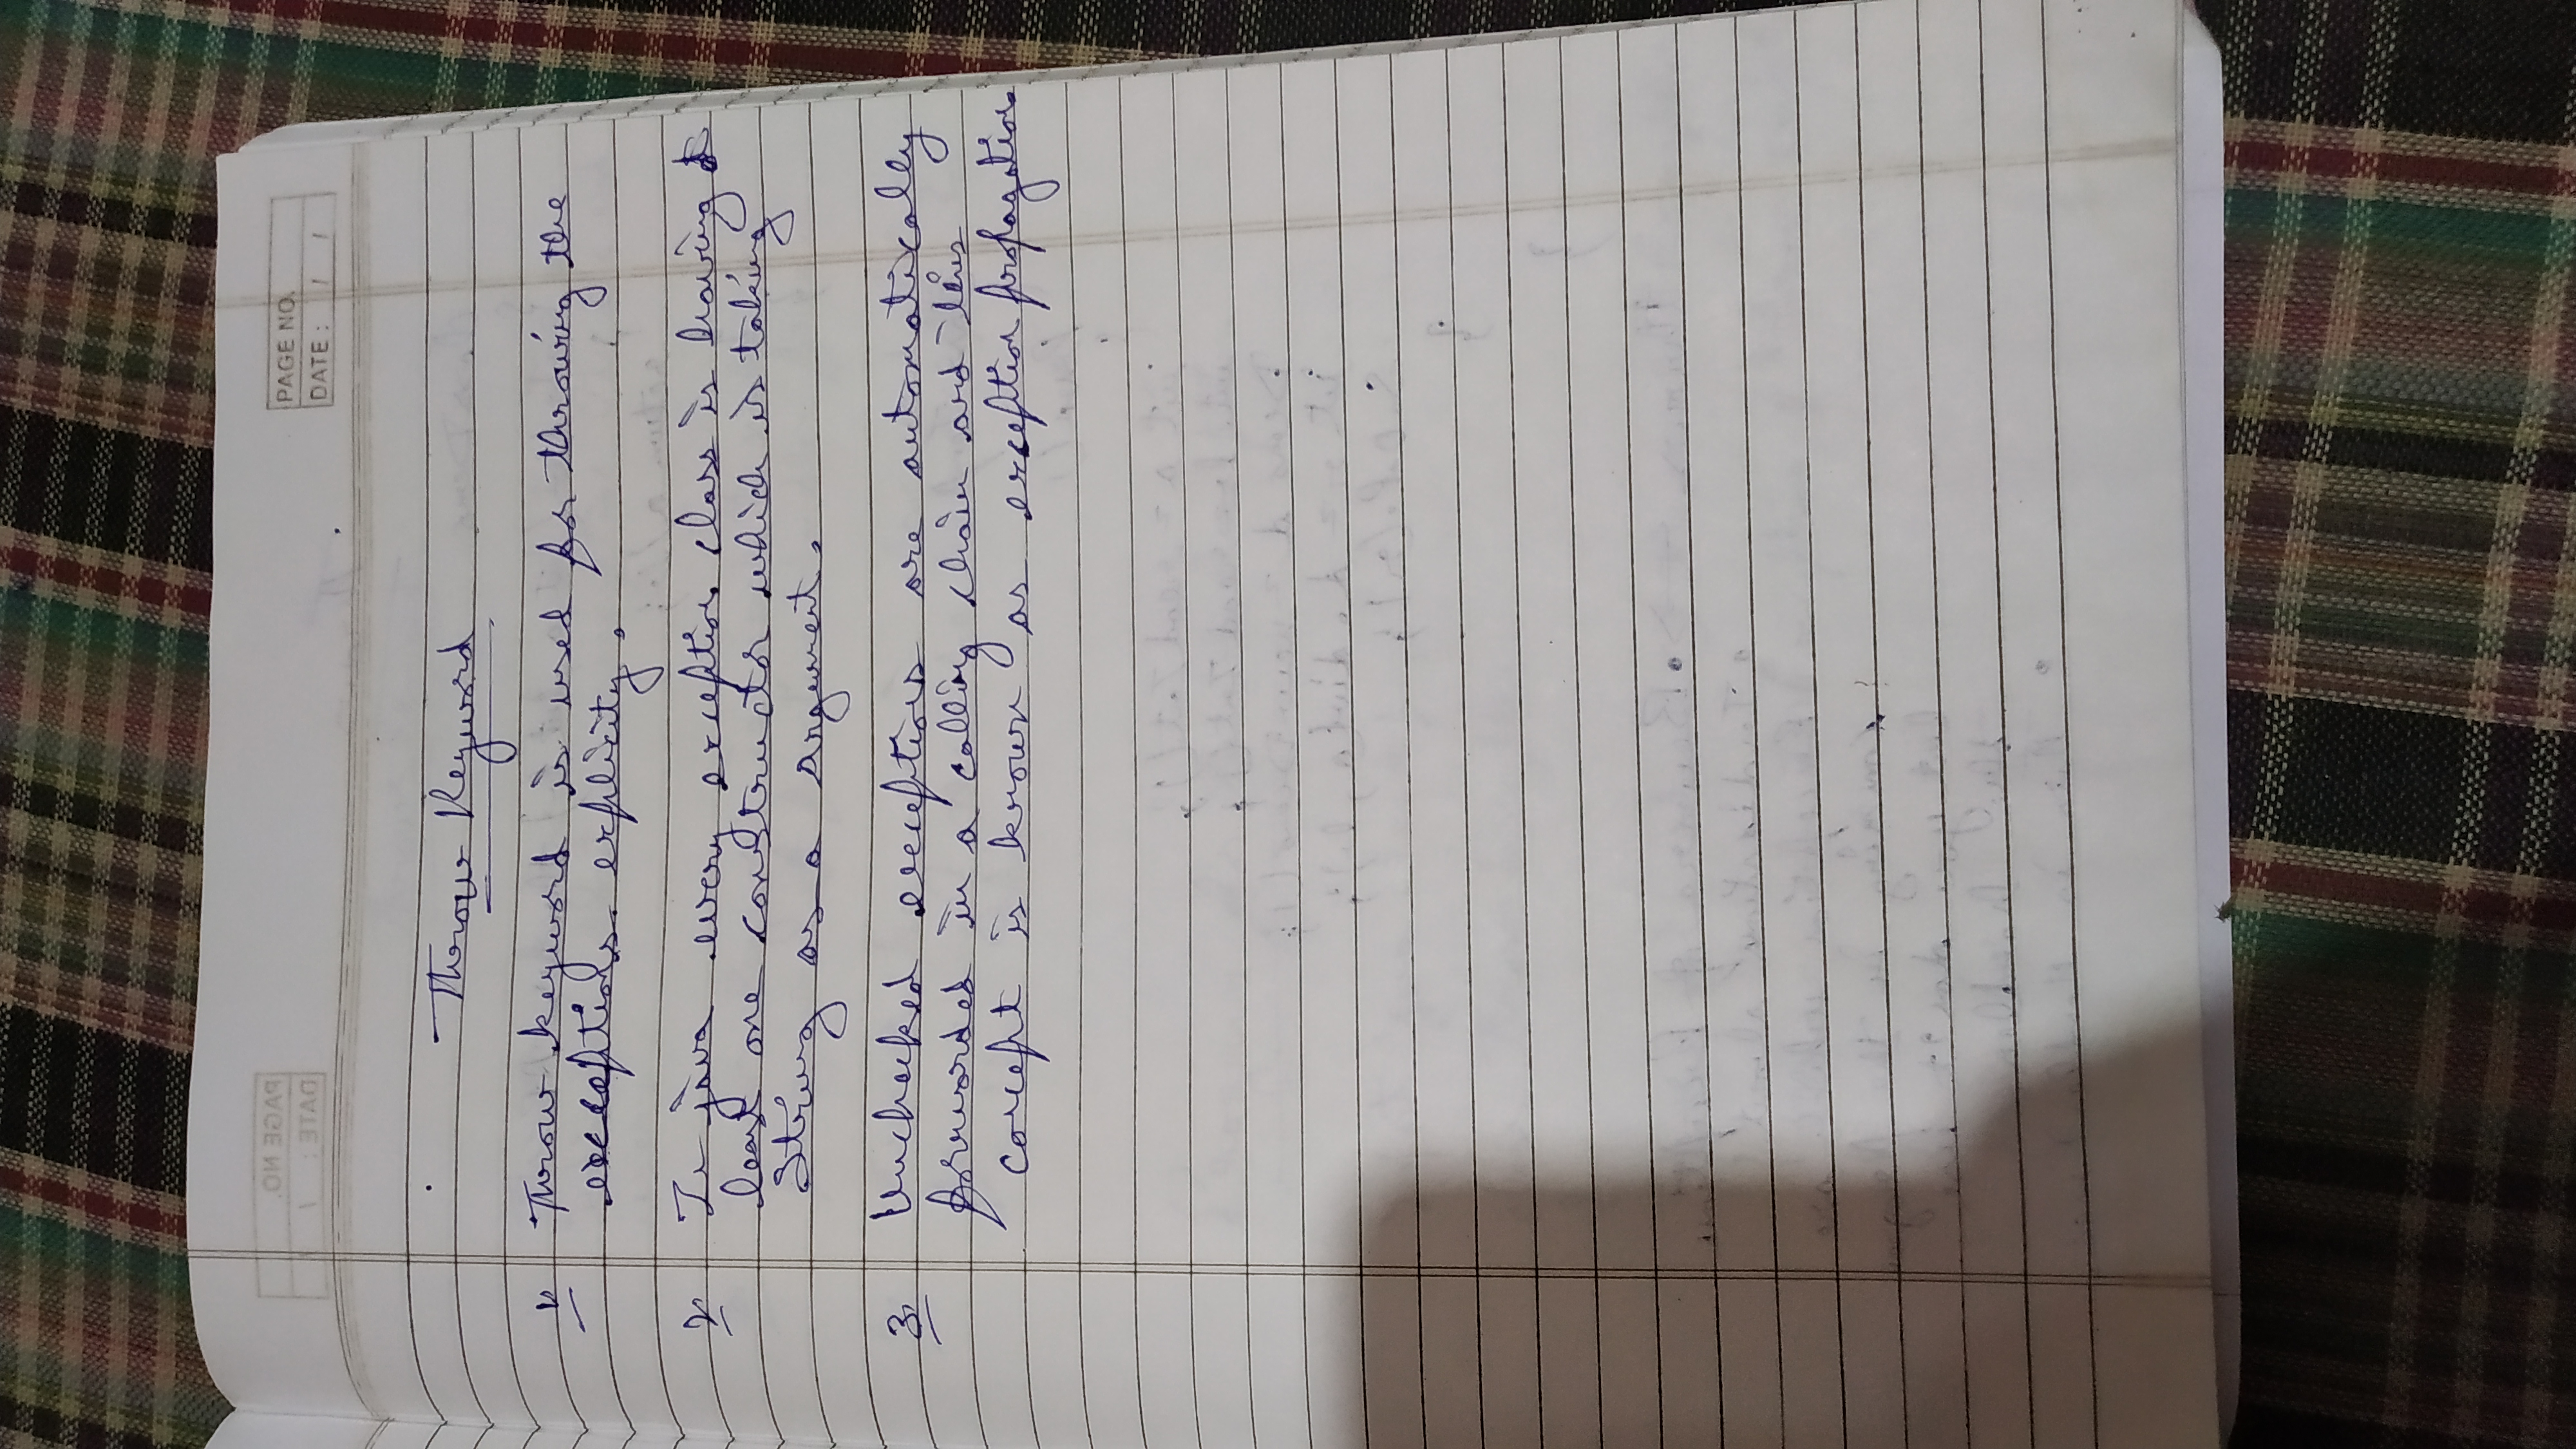 PAGE NO.
DATE : / /
Throw Keyword
1. Throw keyword is used for throwing the
exceptions explicity.
2. In java every exception class is having at
least one constructor which is taking
String as a argument.
3. Unchecked exceptions are automatically
forwarded in a calling chain and this
concept is known as exception propagation